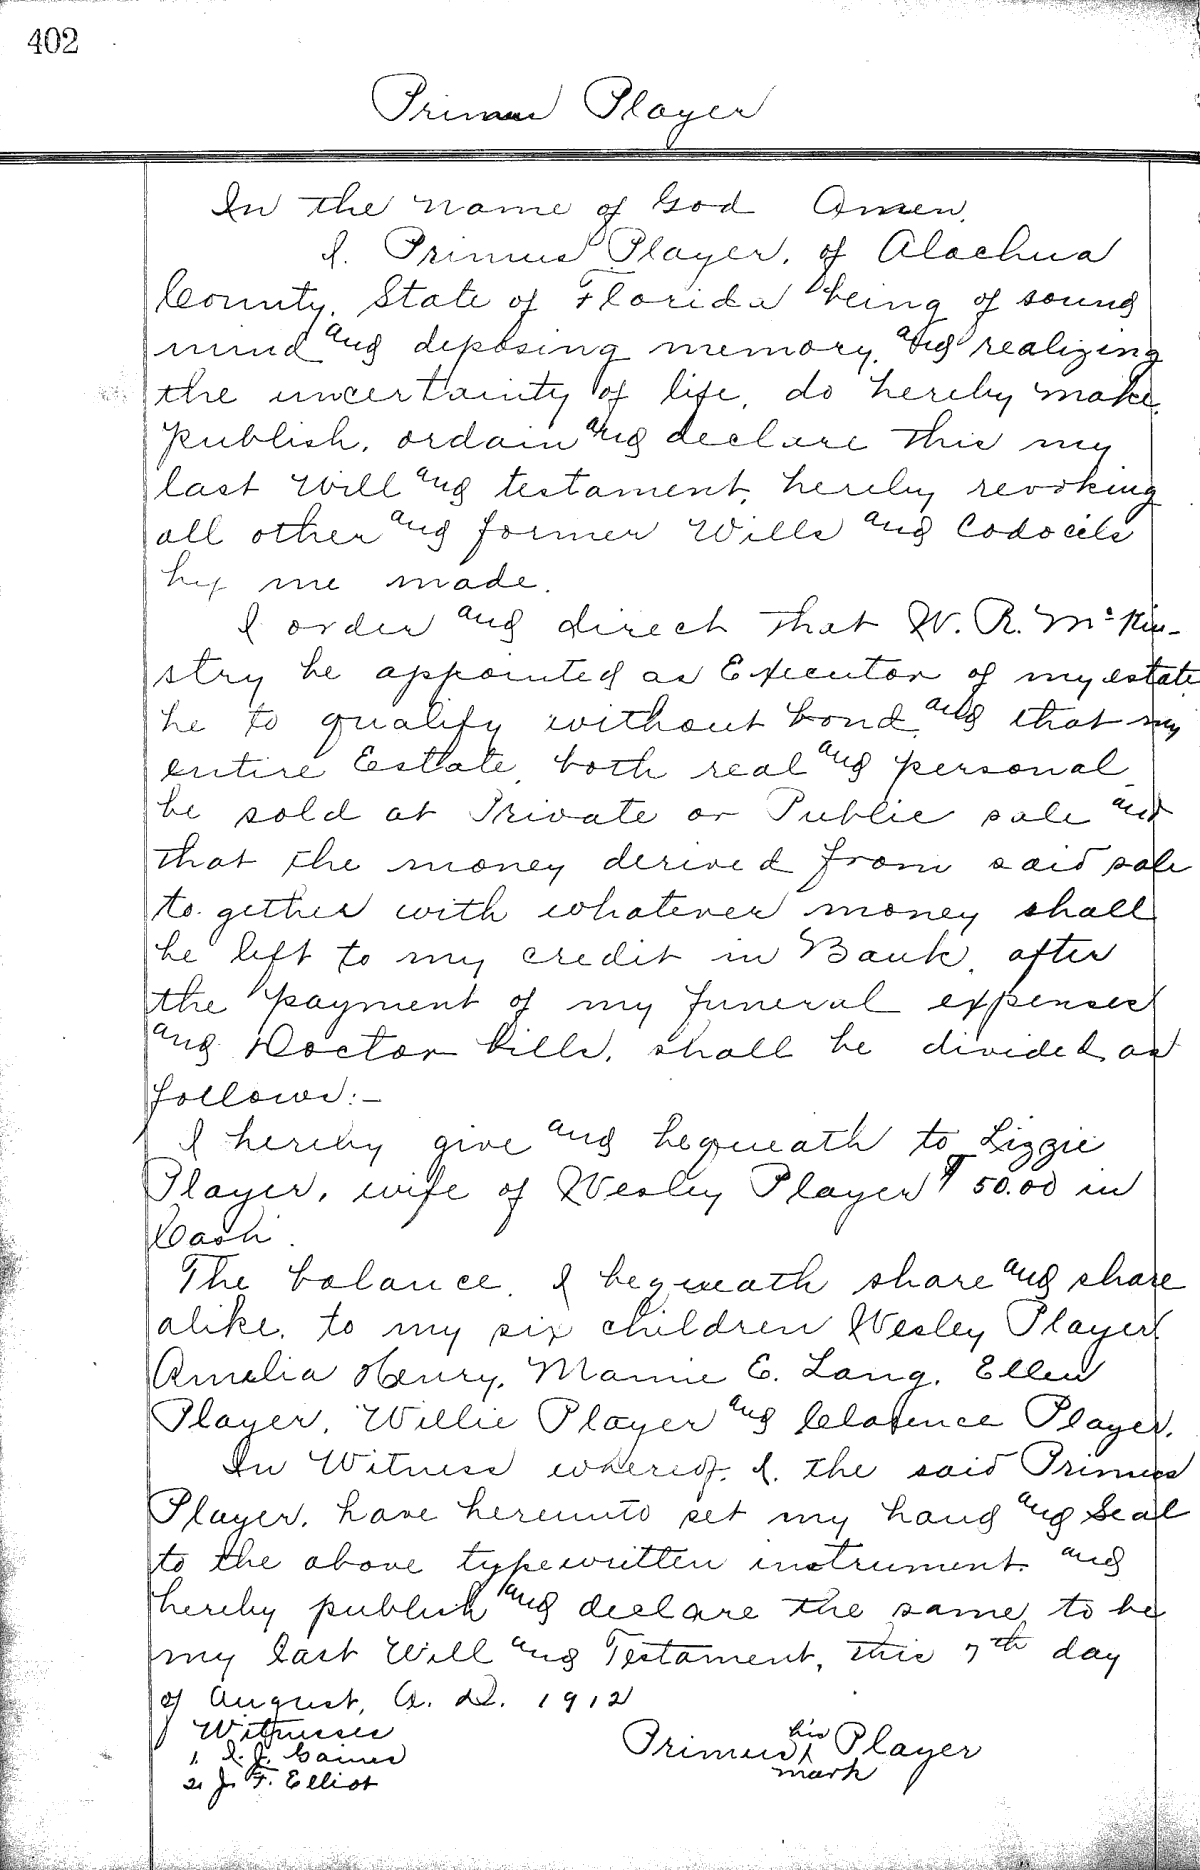 402
Primus Player
In the name of God Amen.
I. Primus Player, of Alachua
County, State of Florida being of sound
mind and deposing memory, and realizing
the uncertainty of life, do hereby make,
publish, ordain and declare this my
last Will and testament, hereby revoking
all other and former Wills and Codocils
by me made.
I order and direct that W. R. McKin-
stry be appointed as Executor of my estate
he to qualify without bond, and that my
entire Estate, both real and personal
be sold at Private or Public sale and
that the money derived from said sale
to.gether with whatever money shall
be left to my credit in Bank, after
the payment of my funeral expenses
and Doctor bills, shall be divided as
follows:-
I hereby give and bequeath to Lizzie
Player, wife of Wesley Player $50.00 in
Cash.
The balance, I bequeath share and share
alike, to my six children Wesley Player
Amelia Henry, Mamie E. Lang, Ellen
Player, Willie Player and Clarence Player.
In Witness whereof, I. the said Primus
Player, have hereunto set my hand and Seal
to the above typewritten instrument and
hereby publish and declare the same to be
my last Will and Testament, this 7th day
of August, A. D. 1912
Witnesses
1. I. J. Gaines
2. J. F. Elliot
his
Primus X Player
mark